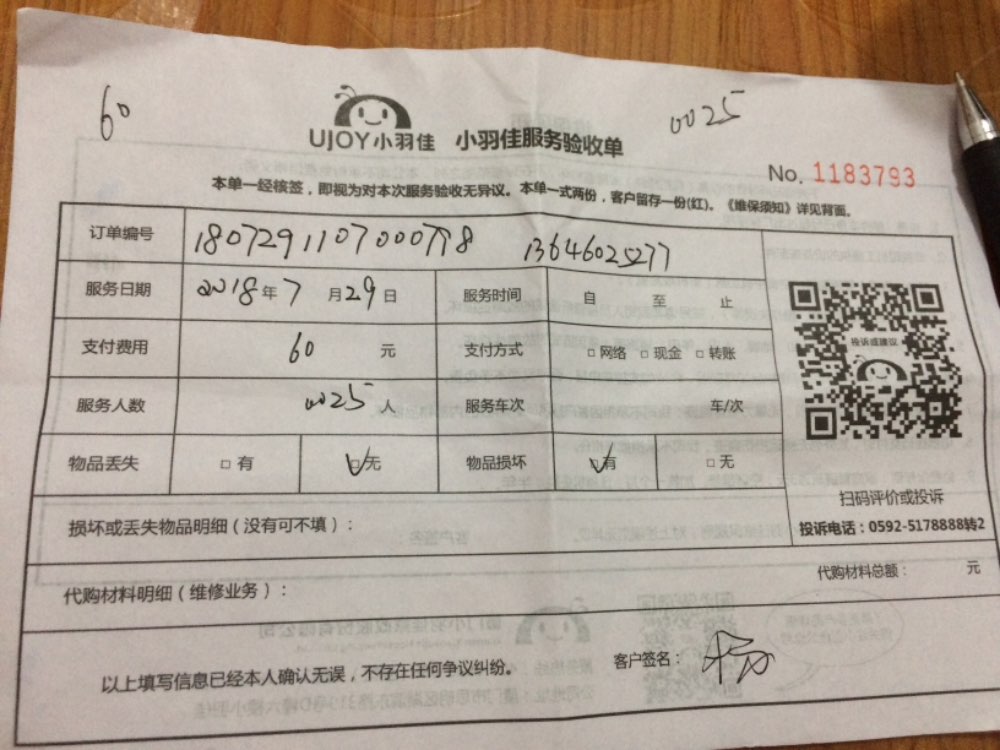 60
0025
UJOY小羽佳 小羽佳服务验收单
No. 1183793
本单一经核签，即视为对本次服务验收无异议。本单一式两份，客户留存一份(红)。《维保须知》详见背面。
订单编号 13646025277
服务日期 2018年7月29日 服务时间 自 至 止
支付费用 60 元 支付方式 □网络 □现金 □转账
服务人数 0025人 服务车次 车/次
物品丢失 □有 ☑无 物品损坏 ☑有 □无
投诉或建议
扫码评价或投诉
投诉电话：0592-5178888转2
损坏或丢失物品明细（没有可不填）：
代购材料明细（维修业务）：
代购材料总额： 元
以上填写信息已经本人确认无误，不存在任何争议纠纷。
客户签名：